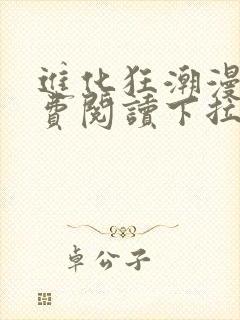 進化狂潮漫
費閱讀下拉
卓公子